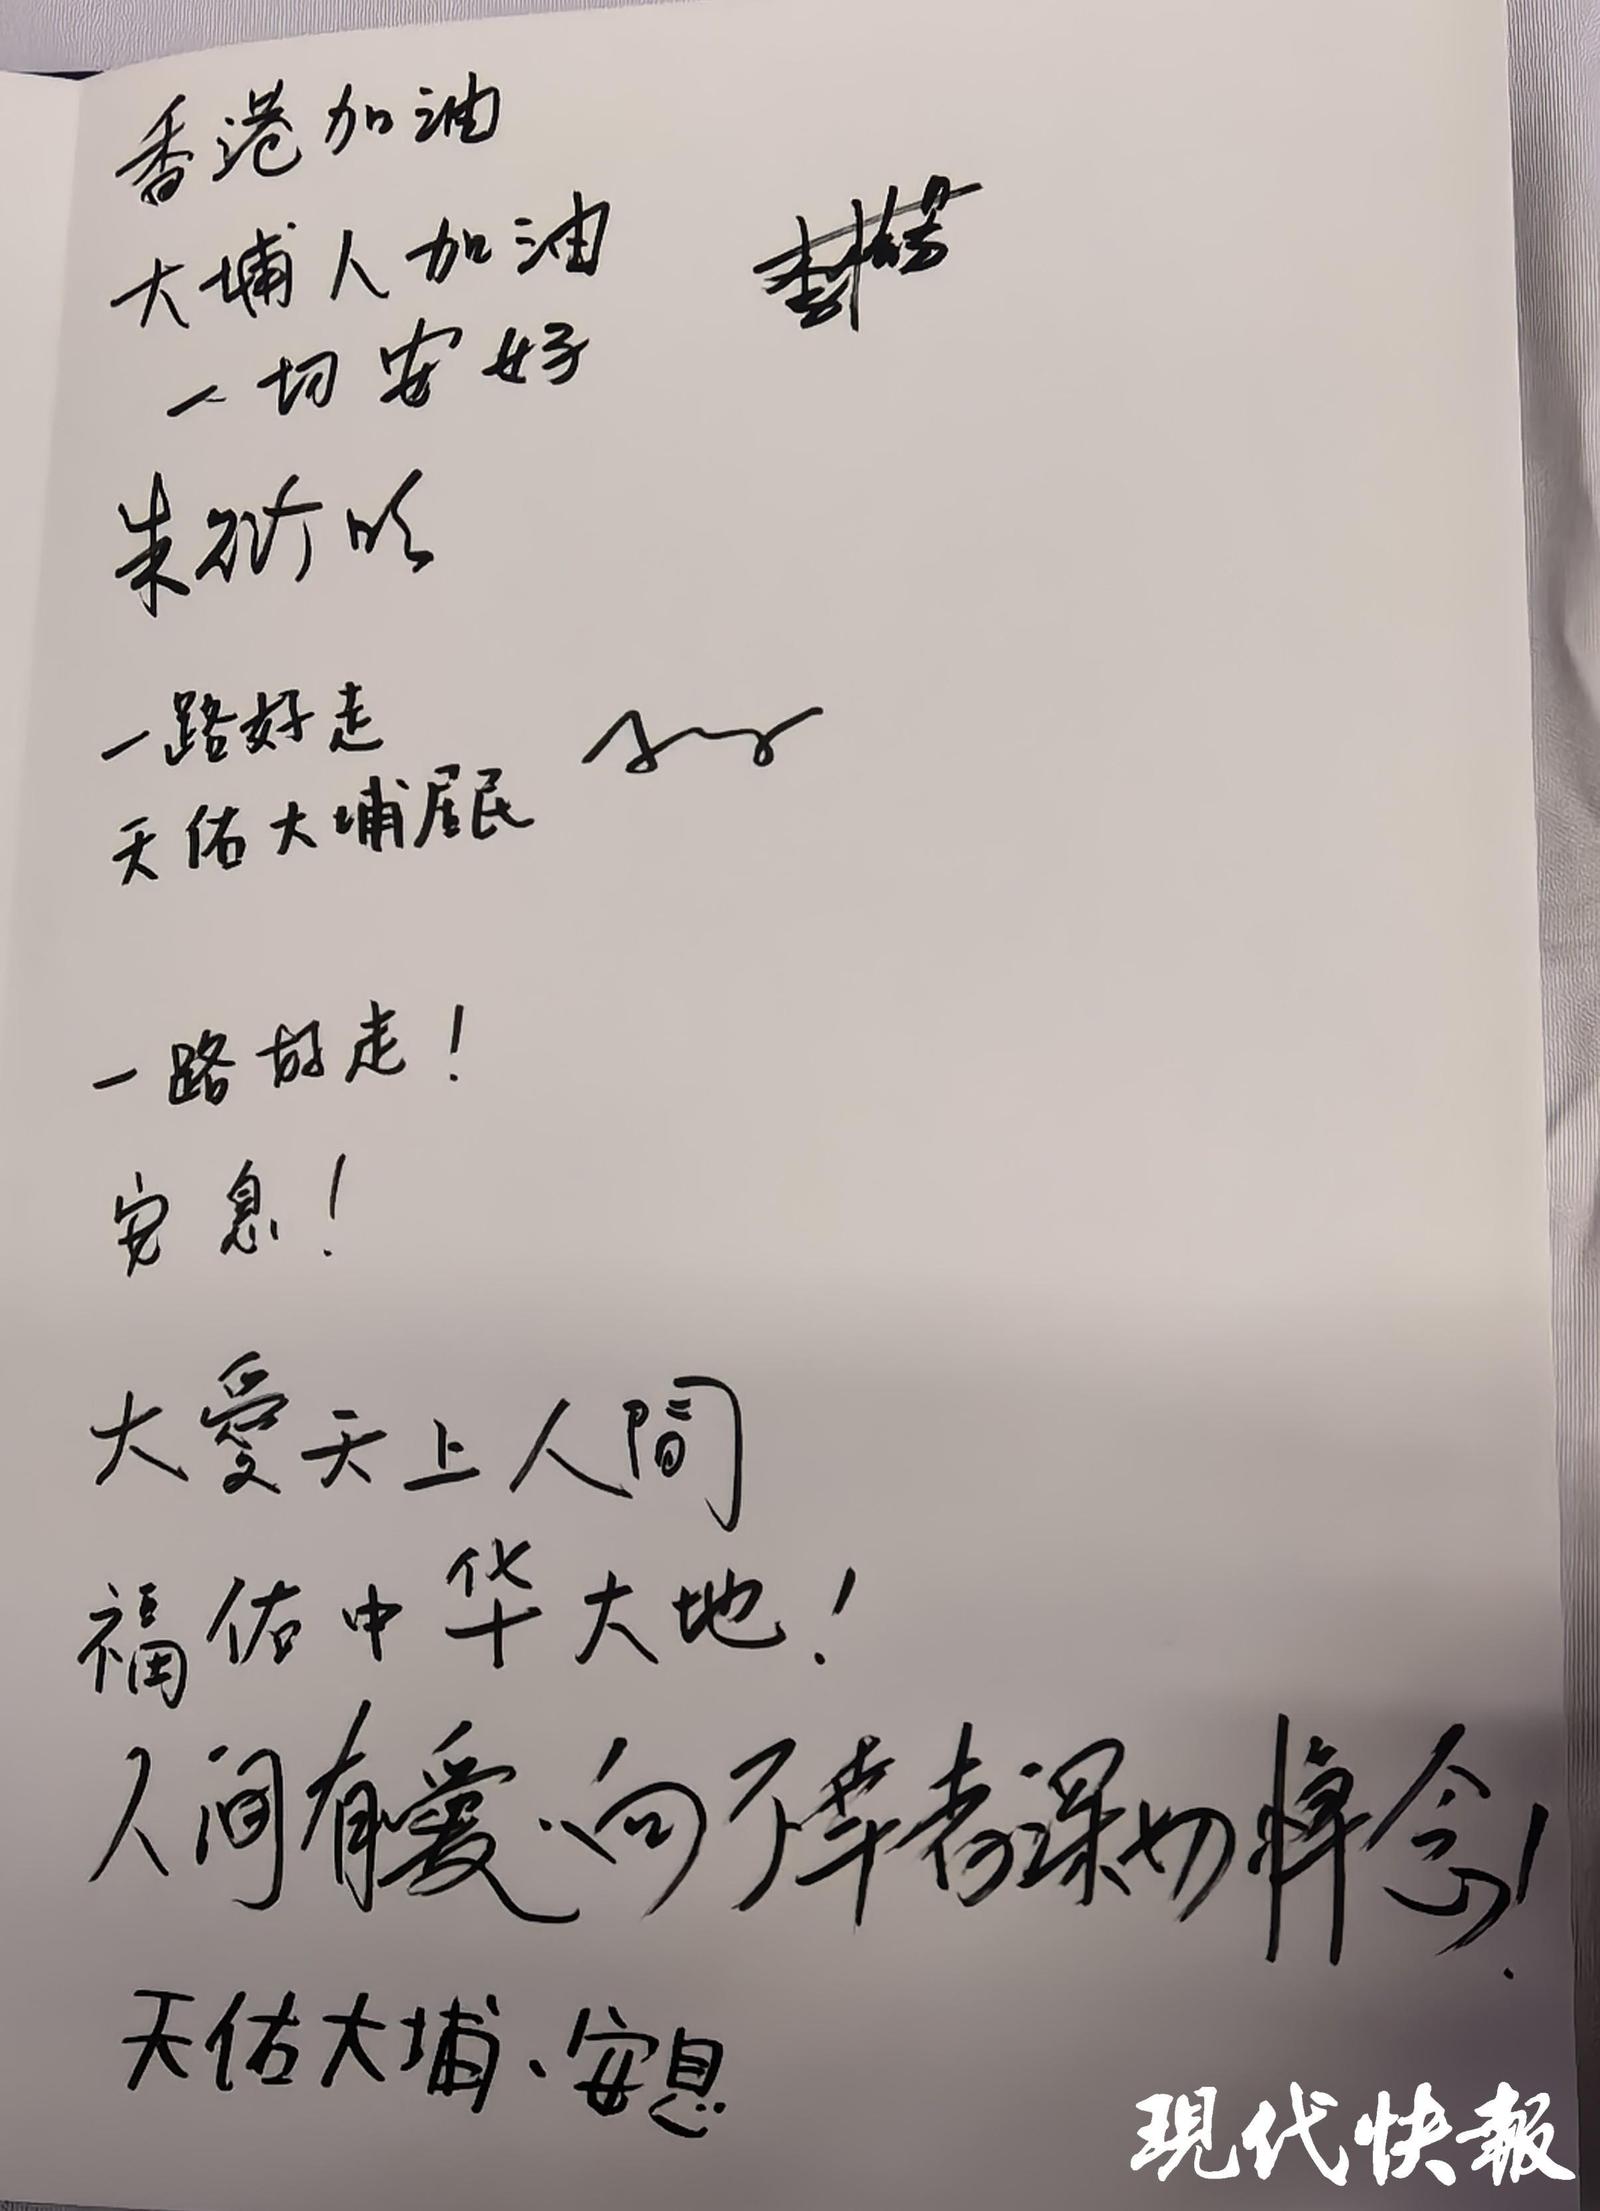 香港加油
大埔人加油
一切安好
朱衍
一路好走
天佑大埔居民
一路好走！
安息！
大愛天上人間
福佑中华大地！
人间有愛、向不幸者深切悼念！
天佑大埔、安息
現代快報